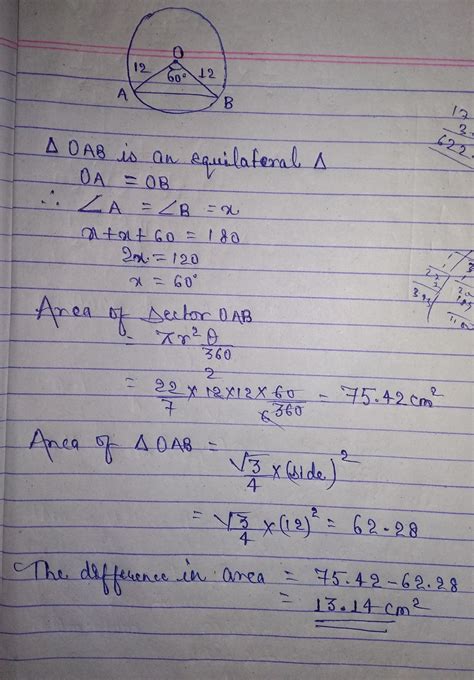 O
12 60° 12
A B
Δ OAB is an equilateral Δ
OA = OB
∴ ∠A = ∠B = x
x+x+60 = 180
2x = 120
x = 60°
Area of Sector OAB
= πr²θ/360
= 22/7 × 12×12× 60/360 - 75.42 cm²
2
6
Area of Δ OAB =
√3/4 × (side)²
= √3/4 × (12)² = 62.28
The difference in area = 75.42-62.28
= 13.14 cm²